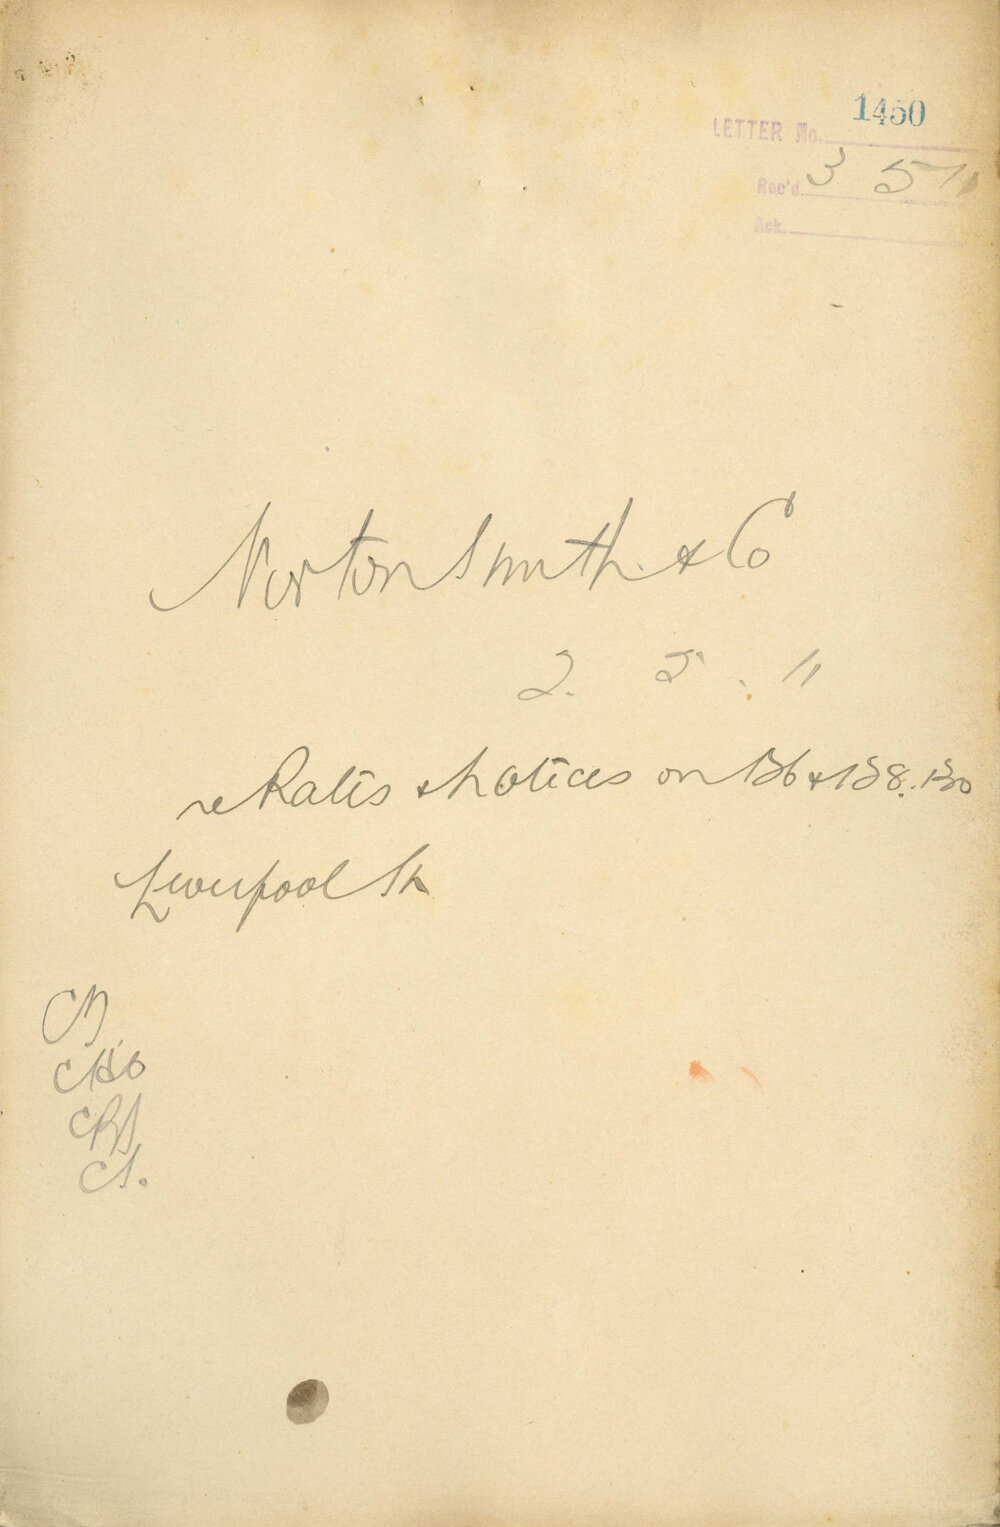 LETTER No. 1450
Rec'd. 3 5 11
Ack.
Norton Smith & Co
2. 5. 11
re Rates & Notices on 136 & 138.130
Liverpool St
CS.